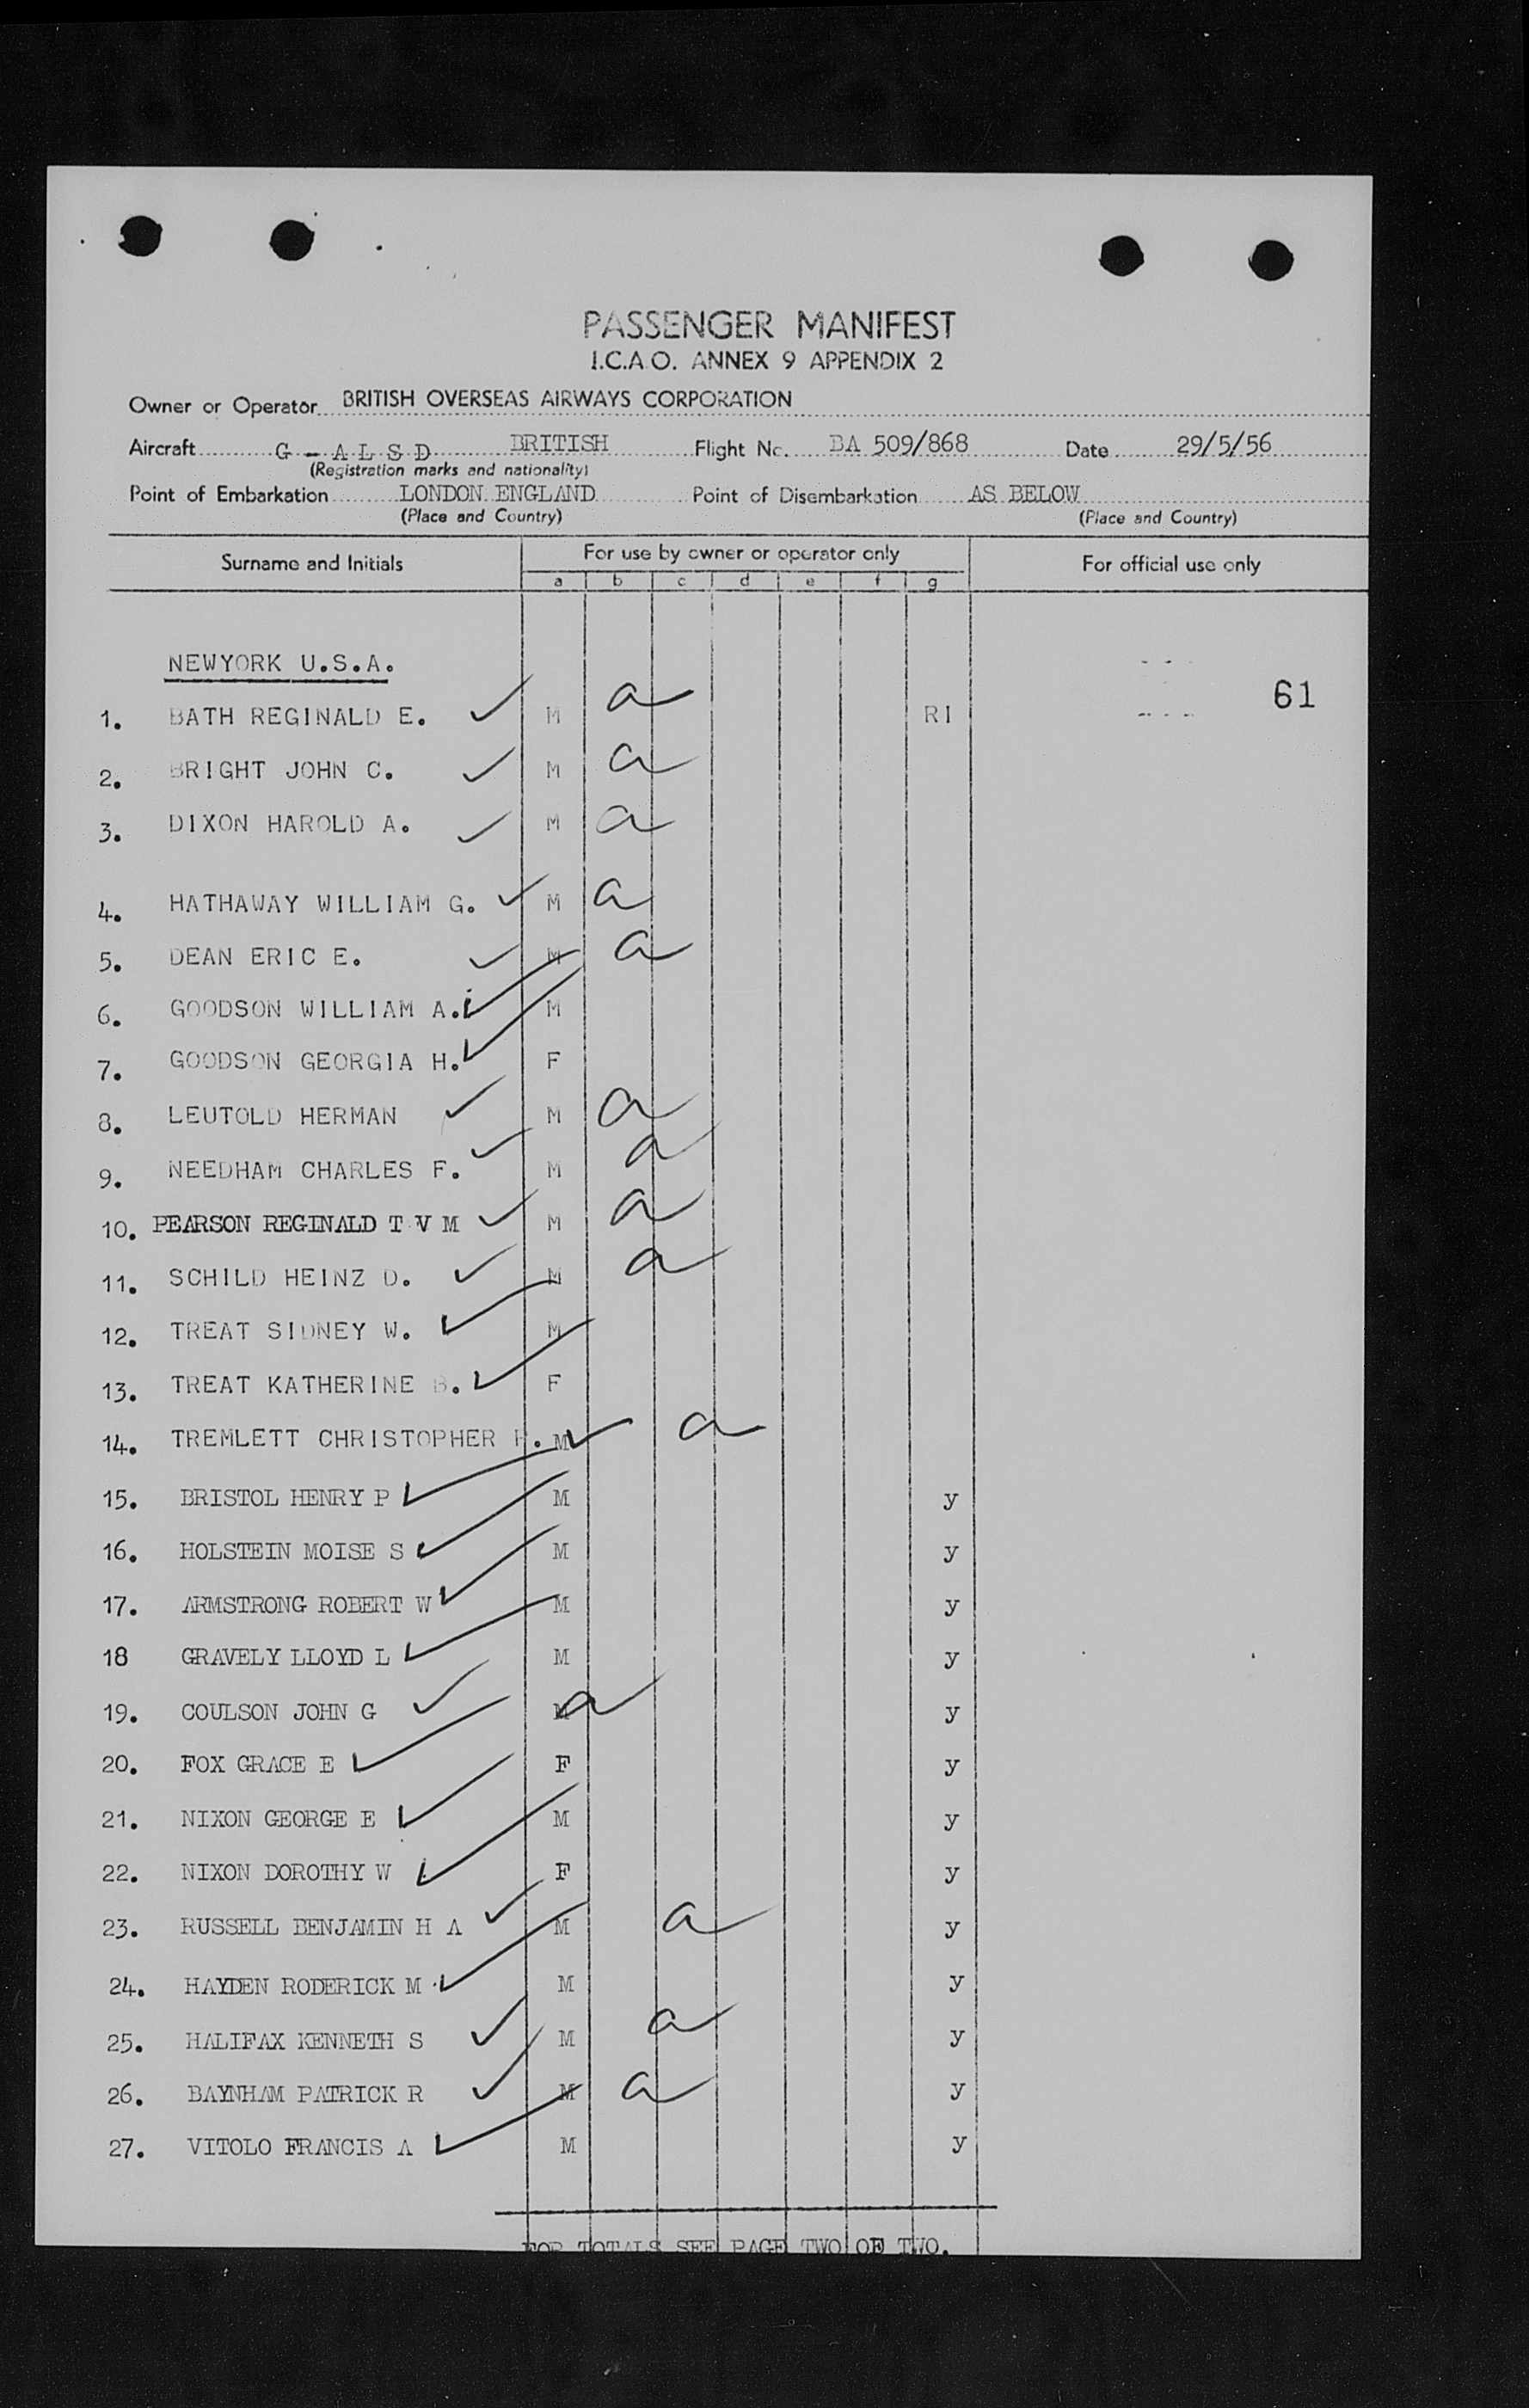 PASSENGER MANIFEST
I.C.A.O. ANNEX 9 APPENDIX 2
Owner or Operator BRITISH OVERSEAS AIRWAYS CORPORATION
Aircraft G - A L S D BRITISH Flight No. BA 509/868 Date 29/5/56
(Registration marks and nationality)
Point of Embarkation LONDON ENGLAND Point of Disembarkation AS BELOW
(Place and Country) (Place and Country)
Surname and Initials For use by owner or operator only For official use only
a b c d e f g
NEWYORK U.S.A.
61
1. BATH REGINALD E. M a RI
2. BRIGHT JOHN C. M a
3. DIXON HAROLD A. M a
4. HATHAWAY WILLIAM G. M a
5. DEAN ERIC E. M a
6. GOODSON WILLIAM A. M
7. GOODSON GEORGIA H. F
8. LEUTOLD HERMAN M a
9. NEEDHAM CHARLES F. M a
10. PEARSON REGINALD T V M M a
11. SCHILD HEINZ D. M a
12. TREAT SIDNEY W. M
13. TREAT KATHERINE B. F
14. TREMLETT CHRISTOPHER M a
15. BRISTOL HENRY P M y
16. HOLSTEIN MOISE S M y
17. ARMSTRONG ROBERT W M y
18 GRAVELY LLOYD L M y
19. COULSON JOHN G M a y
20. FOX GRACE E F y
21. NIXON GEORGE E M y
22. NIXON DOROTHY W F y
23. RUSSELL BENJAMIN H A M a y
24. HAYDEN RODERICK M M y
25. HALIFAX KENNETH S M a y
26. BAYNHAM PATRICK R M a y
27. VITOLO FRANCIS A M y
FOR TOTALS SEE PAGE TWO OF TWO.